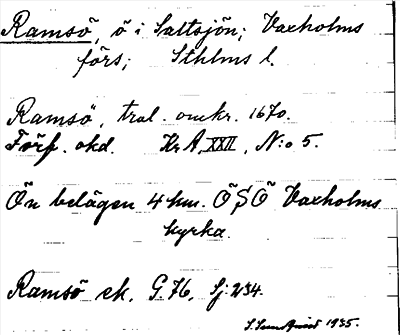 Ramsö, ö i Saltsjön; Vaxholms
förs; Sthlms l.
Ramsö, tral. omkr. 1670.
Förf. okd. Kr A, XXII, N:o 5.
Ön belägen 4 km. Ö S Ö Vaxholms
kyrka.
Ramsö ek. G. 76, Sj: 234.
1935.